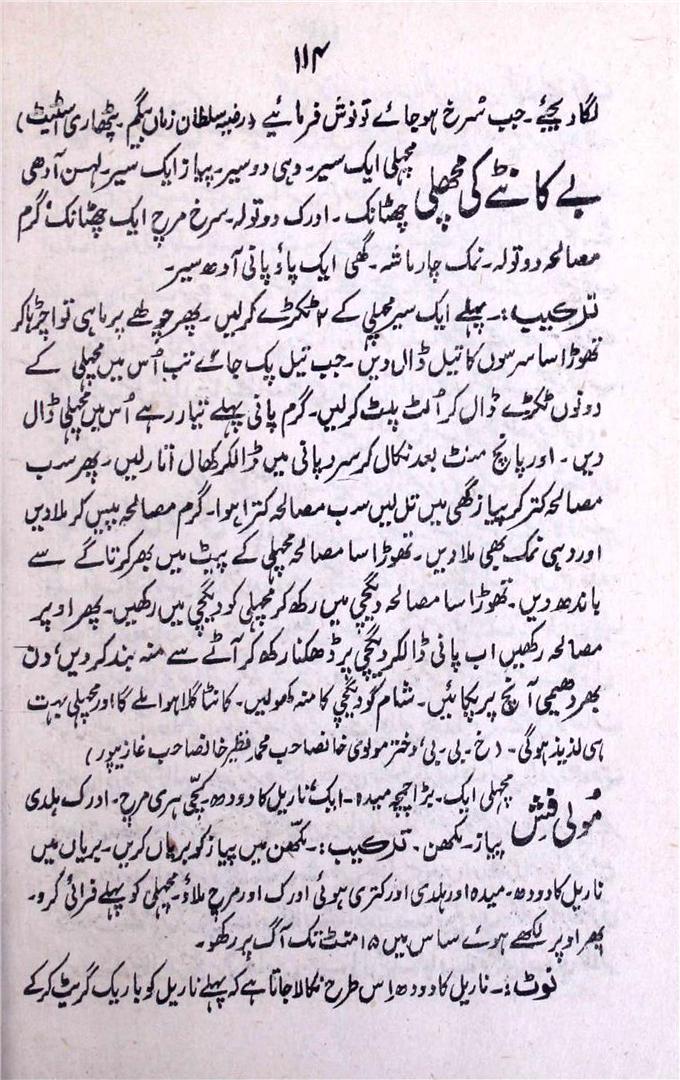 ۱۱۴
لگا دیجئے۔ جب سُرخ ہو جائے تو نوش فرمائیے (رضیہ سلطان زماں بیگم۔ پٹھاری اسٹیٹ)
بے کانٹے کی مچھلی مچھلی ایک سیر۔ دہی دو سیر۔ پیاز ایک سیر۔ لہسن آدھی
چھٹانک۔ ادرک دو تولہ۔ سرخ مرچ ایک چھٹانک، گرم
مصالحہ دو تولہ۔ نمک چار ماشہ۔ گھی ایک پاؤ پانی آدھ سیر۔
ترکیب:۔ پہلے ایک سیر مچھلی کے ۲ ٹکڑے کرلیں۔ پھر چولھے پر ماہی توا چڑہا کر
تھوڑا سا سرسوں کا تیل ڈال دیں۔ جب تیل پک جائے تب اُس میں مچھلی کے
دونوں ٹکڑے ڈال کر اُلٹ پلٹ کرلیں۔ گرم پانی پہلے تیار رہے اُس میں مچھلی ڈال
دیں۔ اور پانچ منٹ بعد نکال کر سرد پانی میں ڈالکر کھال اتار لیں۔ پھر سب
مصالحہ کتر کر پیاز گھی میں تل لیں سب مصالحہ کترا ہوا۔ گرم مصالحہ پیس کر ملا دیں
اور دہی نمک بھی ملا دیں۔ تھوڑا سا مصالحہ مچھلی کے پیٹ میں بھر کر تاگے سے
باندھ دیں۔ تھوڑا سا مصالحہ دیگچی میں رکھ کر مچھلی کو دیگچی میں رکھیں۔ پھر اوپر
مصالحہ رکھیں اب پانی ڈالکر دیگچی پر ڈھکنا رکھ کر آٹے سے منہ بند کر دیں، دن
بھر دھیمی آنچ پر پکائیں۔ شام کو دیگچی کا منہ کھولیں۔ کانٹا گلا ہوا ملے گا اور مچھلی بہت
ہی لذیذ ہوگی۔ (خ۔ بی۔ بی، دختر مولوی خانصاحب محمد نظیر خانصاحب غازیپور)
مُولی فِش مچھلی ایک۔ بڑا چمچہ میدہ۔ ایک، ناریل کا دودھ۔ کچّی ہری مرچ۔ ادرک ہلدی
پیاز۔ مکھن۔ ترکیب:۔ مکھّن میں پیاز کو بریاں کریں۔ بریاں میں
ناریل کا دودھ۔ میدہ اور ہلدی اور کتری ہوئی ادرک اور مرچ ملاؤ۔ مچھلی کو پہلے فرائی کرو۔
پھر اوپر لکھے ہوئے ساس میں ۱۵ منٹ تک آگ پر رکھو۔
نوٹ:۔ ناریل کا دودھ اِس طرح نکالا جاتا ہے کہ پہلے ناریل کو باریک گریٹ کرکے